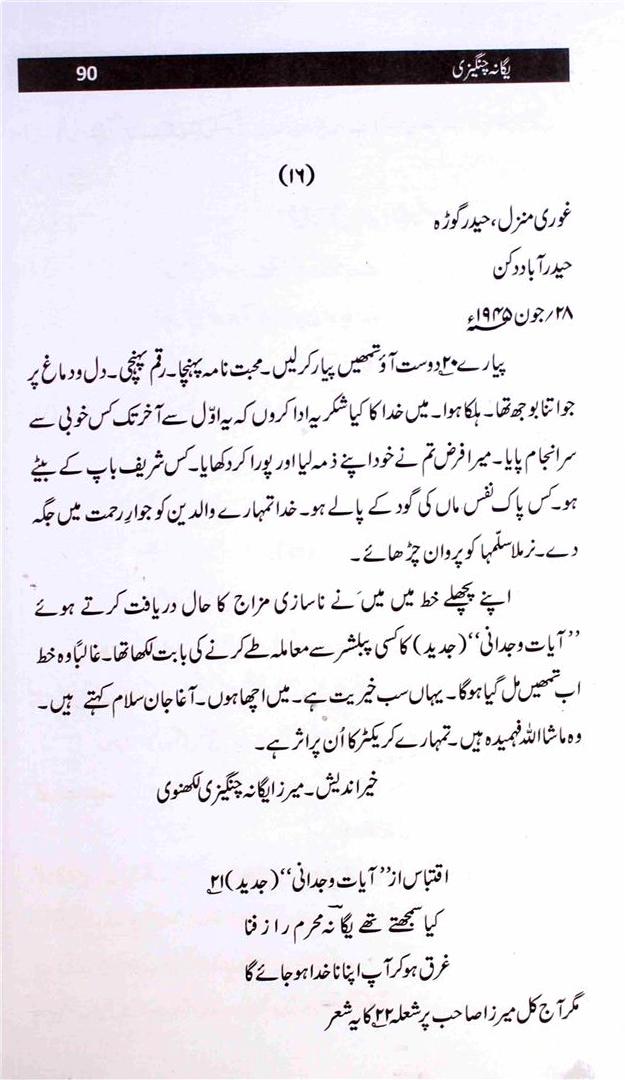 90 یگانہ چنگیزی
(۱۶)
غوری منزل، حیدر گوڑہ
حیدرآباد دکن
۲۸؍جون ۱۹۴۵ء
پیارے۲۰ دوست آؤ تمھیں پیار کرلیں۔ محبت نامہ پہنچا۔ رقم پہنچی۔ دل و دماغ پر
جو اتنا بوجھ تھا۔ ہلکا ہوا۔ میں خدا کا کیا شکریہ ادا کروں کہ یہ اوّل سے آخر تک کس خوبی سے
سرانجام پایا۔ میرا فرض تم نے خود اپنے ذمہ لیا اور پورا کر دکھایا۔ کس شریف باپ کے بیٹے
ہو۔ کس پاک نفس ماں کی گود کے پالے ہو۔ خدا تمہارے والدین کو جوارِ رحمت میں جگہ
دے۔ نرملا سلّمہا کو پروان چڑھائے۔
اپنے پچھلے خط میں میں نے ناسازی مزاج کا حال دریافت کرتے ہوئے
”آیات وجدانی“ (جدید) کا کسی پبلشر سے معاملہ طے کرنے کی بابت لکھا تھا۔ غالباً وہ خط
اب تمھیں مل گیا ہوگا۔ یہاں سب خیریت ہے۔ میں اچھا ہوں۔ آغا جان سلام کہتے ہیں۔
وہ ماشا اللہ فہمیدہ ہیں۔ تمہارے کریکٹر کا اُن پر اثر ہے۔
خیر اندیش۔ میرزا یگانہ چنگیزی لکھنوی
اقتباس از ”آیات وجدانی“ (جدید)۲۱
کیا سمجھتے تھے یگانہ محرم راز فنا
غرق ہو کر آپ اپنا ناخدا ہو جائے گا
مگر آج کل میرزا صاحب پر شعلہ۲۲ کا یہ شعر